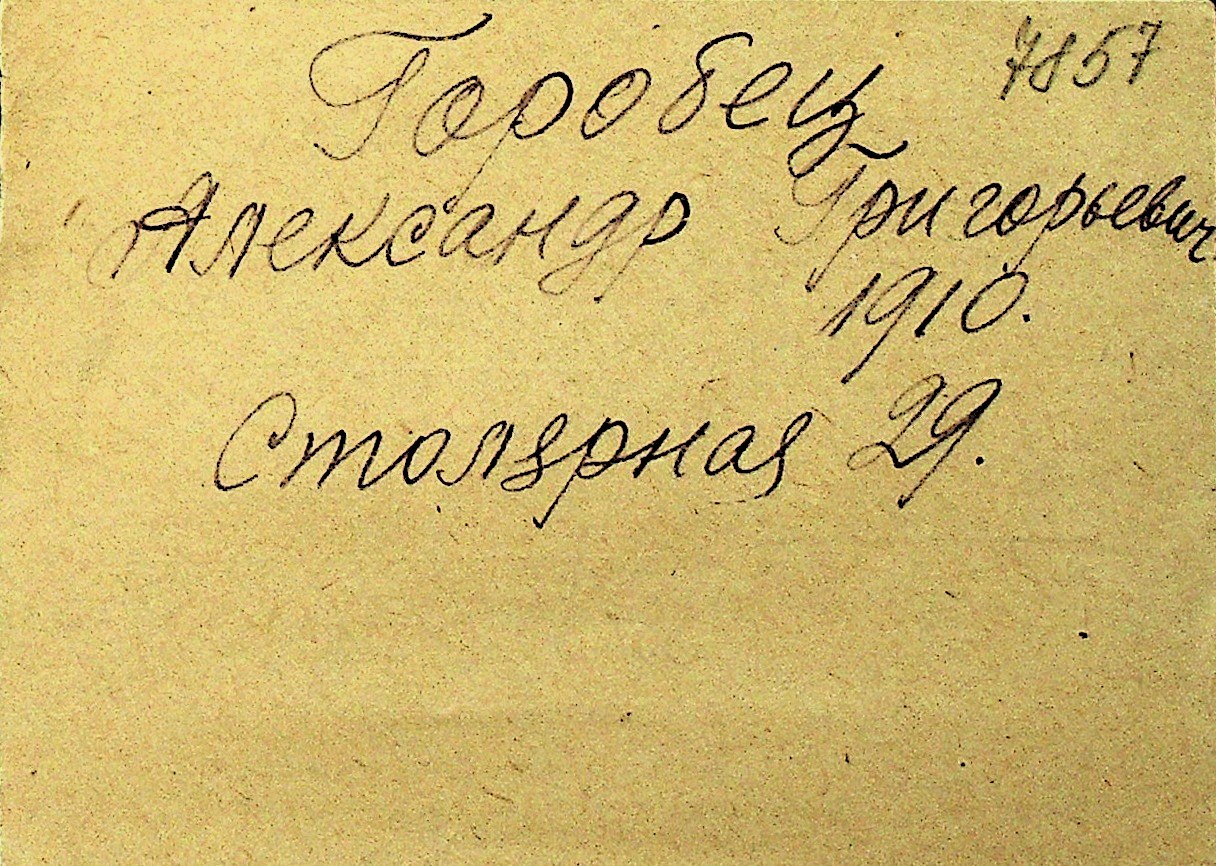 7857
Горобец
Александр Григорьевич
1910.
Столярная 29.